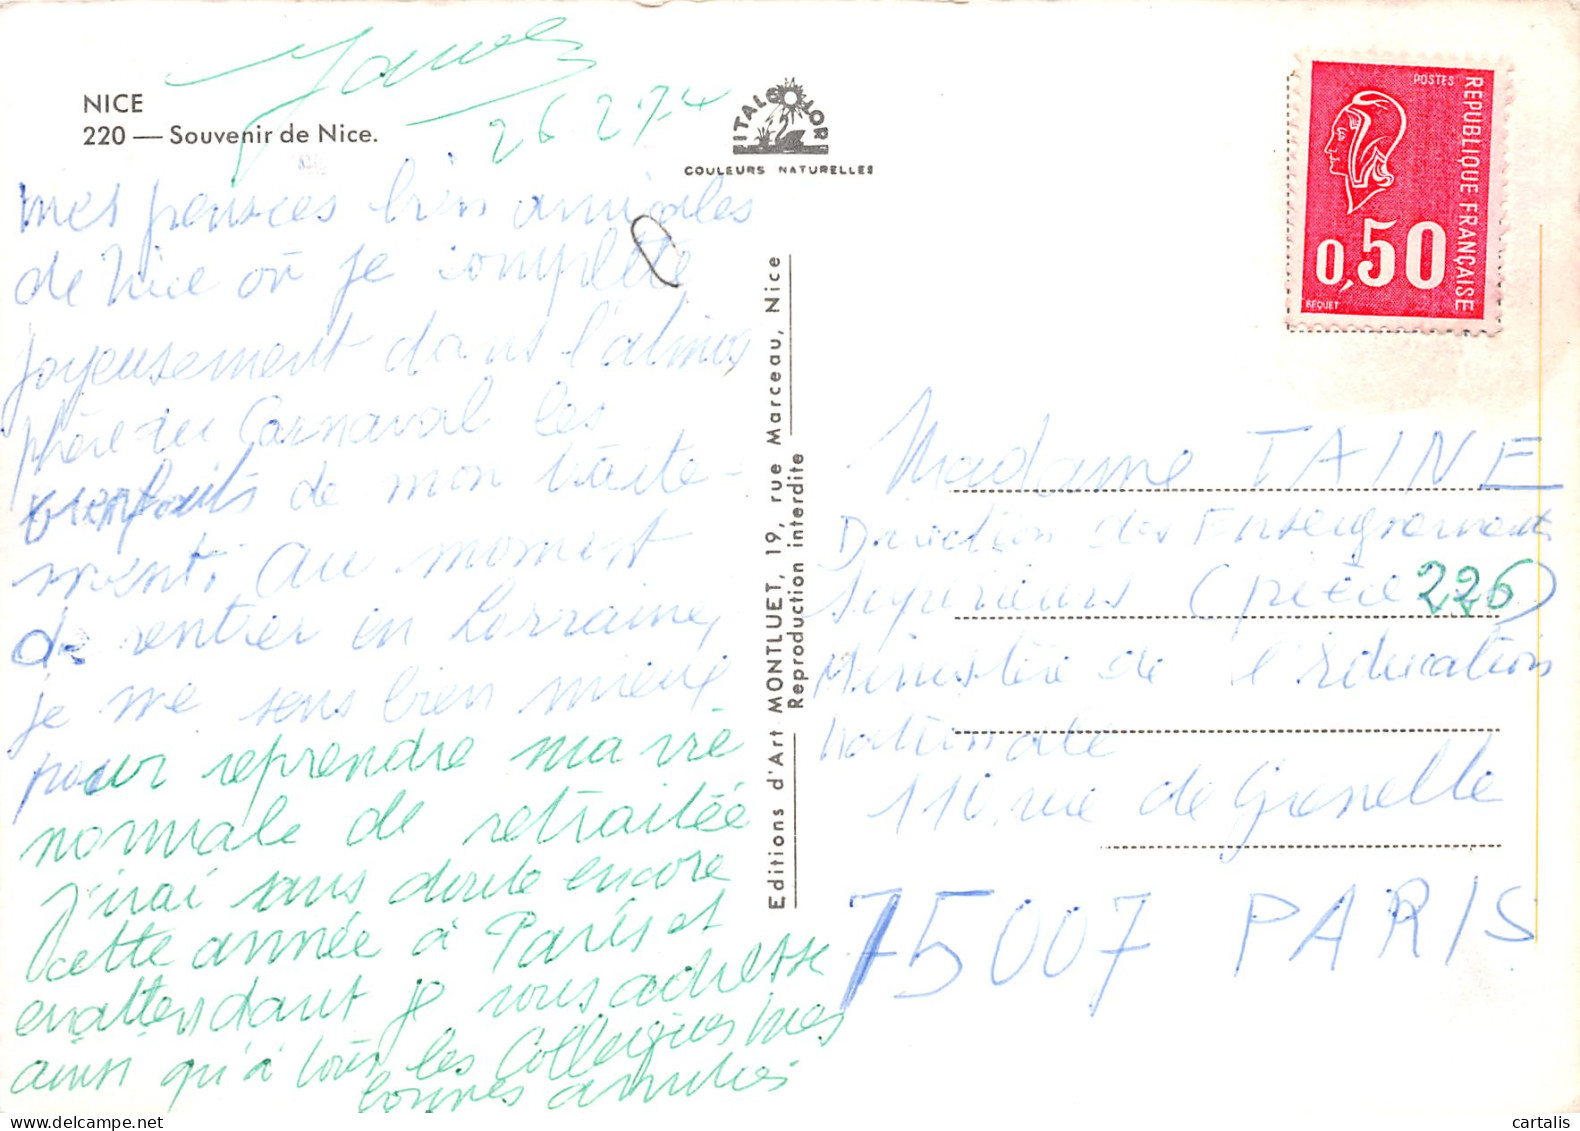 NICE
220 — Souvenir de Nice.
26 2 74
ITALCOLOR
COULEURS NATURELLES
POSTES
REPUBLIQUE FRANÇAISE
0,50
BEQUET
mes pensées bien amicales
de Nice où je complète
joyeusement dans l'atmos
phère du Carnaval les
bienfaits de mon traite-
ment. Au moment
de rentrer en Lorraine,
je me sens bien mieux
pour reprendre ma vie
normale de retraitée
J'irai sans doute encore
cette année à Paris et
en attendant je vous adresse
ainsi qu'à tous les Collègues mes
bonnes amitiés
Editions d'Art MONTLUET, 19, rue Marceau, Nice
Reproduction interdite
Madame TAINE
Direction des Enseignements
Supérieurs (pièce 226)
Ministère de l'Education
Nationale
110 rue de Grenelle
75007 PARIS
cartalis